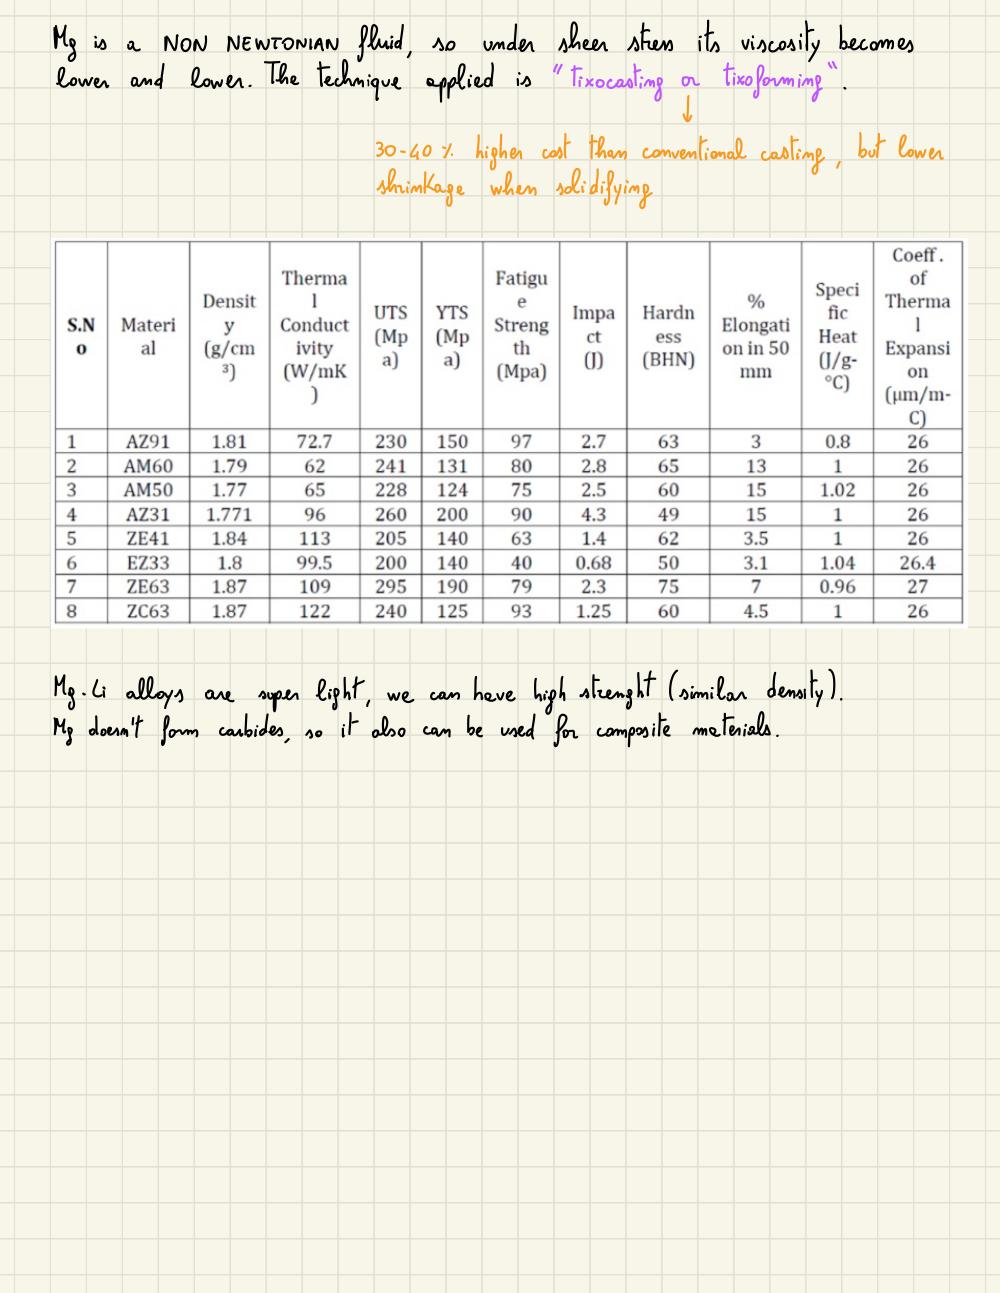 Mg is a NON NEWTONIAN fluid, so under sheer stress its viscosity becomes
lower and lower. The technique applied is "tixocasting or tixoforming".
↓
30-40 % higher cost than conventional casting, but lower
shrinkage when solidifying
S.No Material Density (g/cm³) Thermal Conductivity (W/mK) UTS (Mpa) YTS (Mpa) Fatigue Strength (Mpa) Impact (J) Hardness (BHN) % Elongation in 50 mm Specific Heat (J/g-°C) Coeff. of Thermal Expansion (μm/m-C)
1 AZ91 1.81 72.7 230 150 97 2.7 63 3 0.8 26
2 AM60 1.79 62 241 131 80 2.8 65 13 1 26
3 AM50 1.77 65 228 124 75 2.5 60 15 1.02 26
4 AZ31 1.771 96 260 200 90 4.3 49 15 1 26
5 ZE41 1.84 113 205 140 63 1.4 62 3.5 1 26
6 EZ33 1.8 99.5 200 140 40 0.68 50 3.1 1.04 26.4
7 ZE63 1.87 109 295 190 79 2.3 75 7 0.96 27
8 ZC63 1.87 122 240 125 93 1.25 60 4.5 1 26
Mg-Li alloys are super light, we can have high strenght (similar density).
Mg doesn't form carbides, so it also can be used for composite materials.